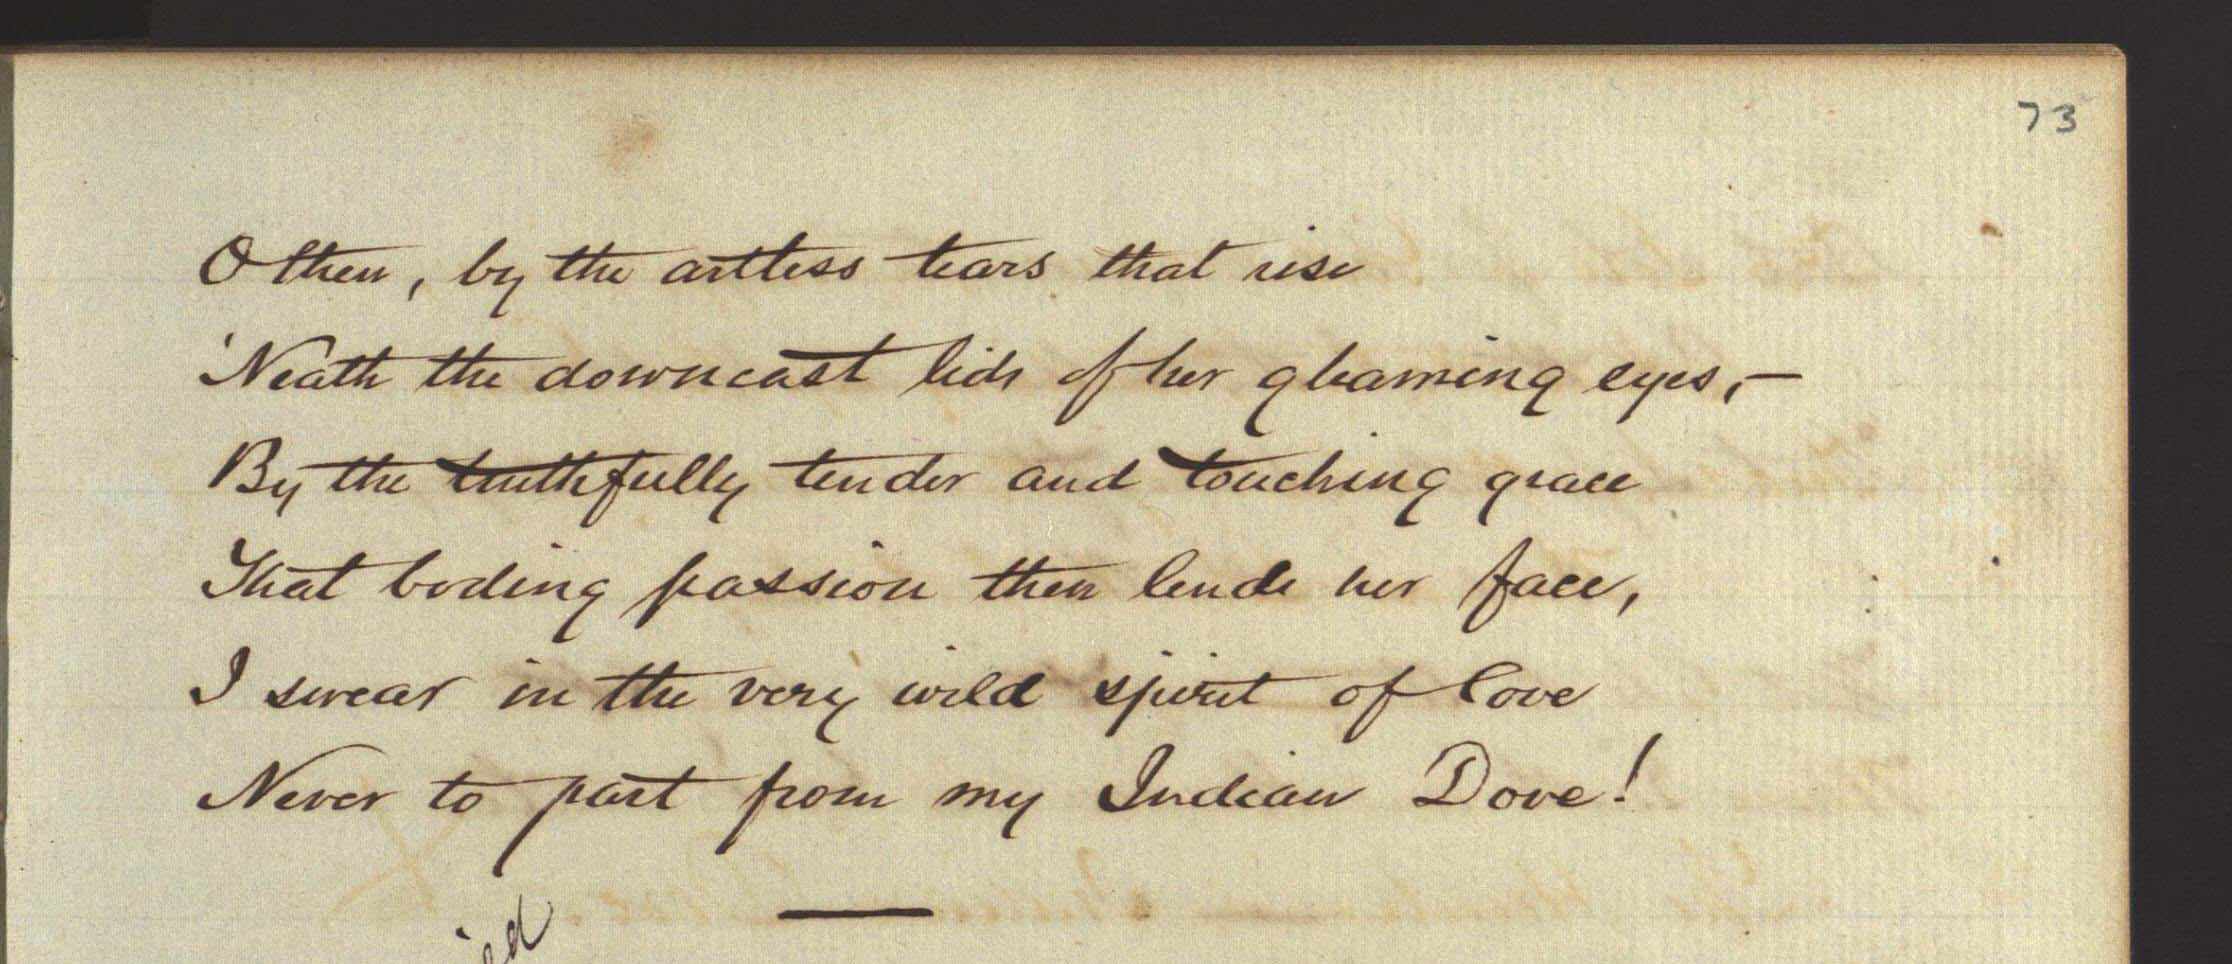 73
O then, by the artless tears that rise
'Neath the downcast lids of her gleaming eyes,—
By the truthfully tender and touching grace
That boding passion then lends her face,
I swear in the very wild spirit of love
Never to part from my Indian Dove!